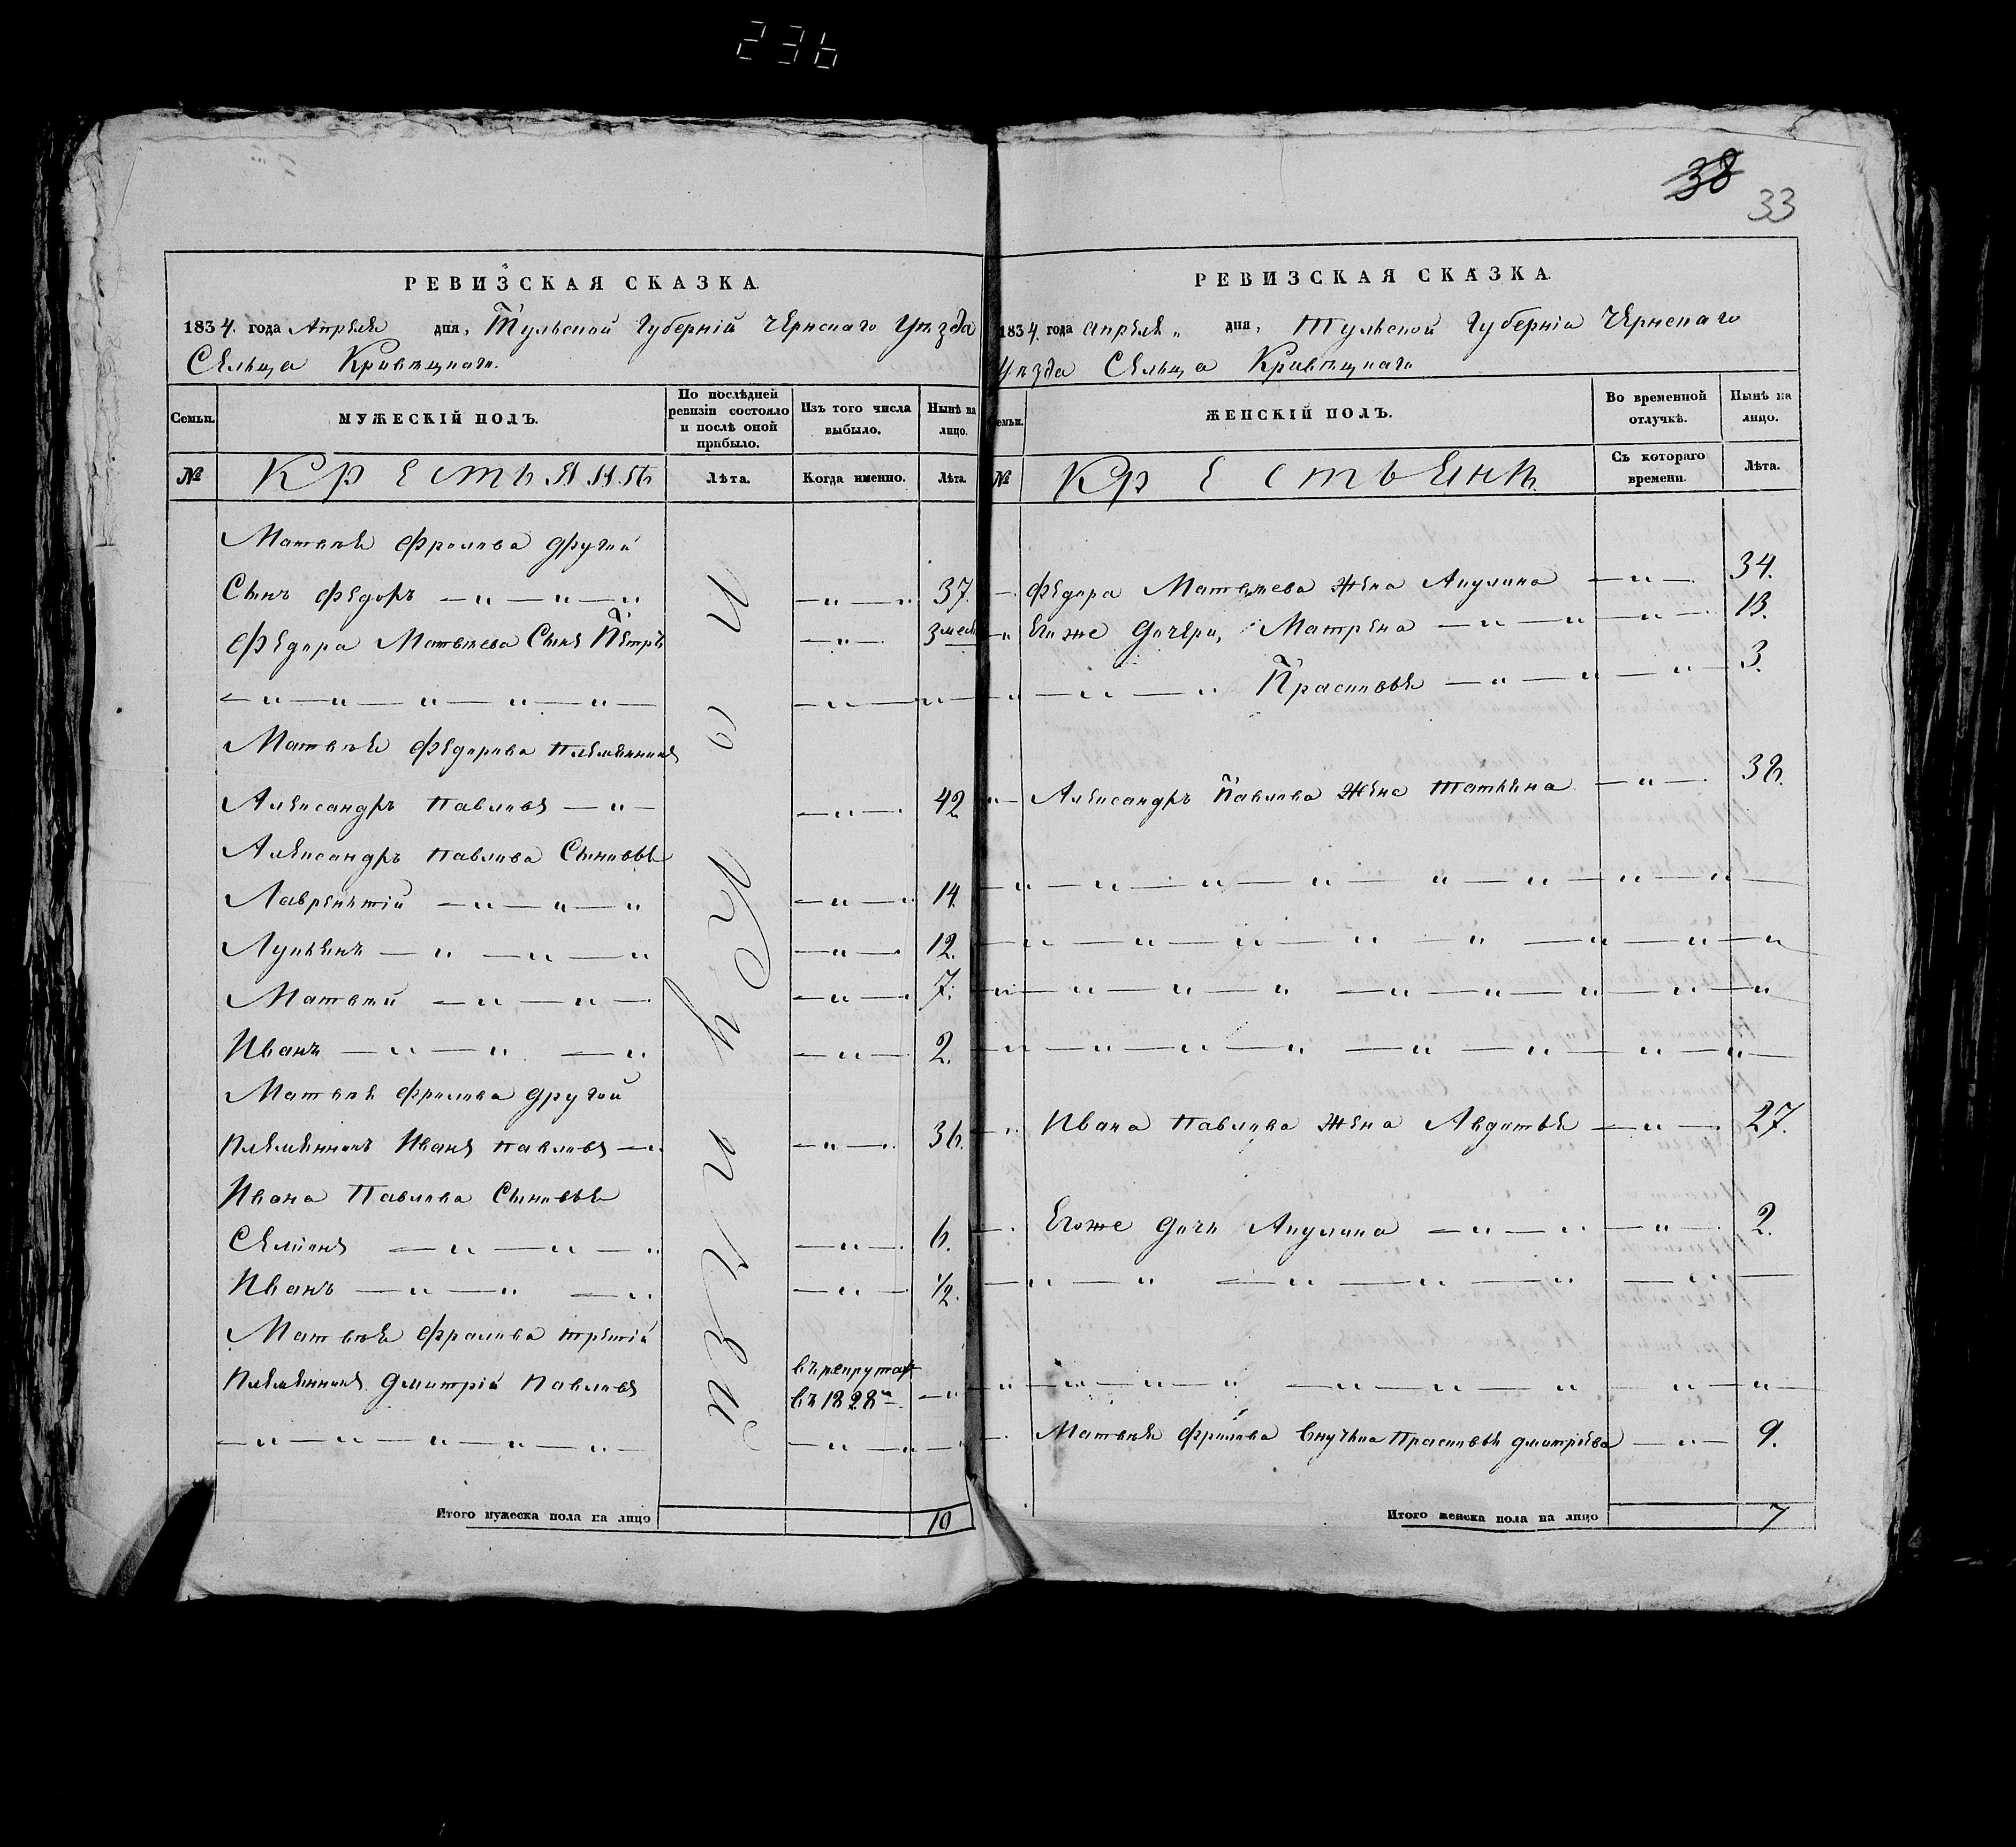 236
38
33
РЕВИЗСКАЯ СКАЗКА.
1834. года Апреля дня, Тульской Губерніи Чернскаго Уѣзда
Сельца Кривецкаго.
Семьи. МУЖЕСКІЙ ПОЛЪ. По послѣдней ревизіи состояло и послѣ оной прибыло. Изъ того числа выбыло. Нынѣ на лицо.
№ Крестьянъ Лѣта. Когда именно. Лѣта.
Матвѣя Фролова другой
Сынъ Федоръ — „ — „ — „ — „ — „ 37.
Федора Матвѣева Сынъ Петръ — „ — 3 мес
— „ — „ — „ — „ — „ — — „ — „ —
Матвѣя Федорова племянникъ
Александръ Павловъ — „ — — „ — 42
Александръ Павлова Сыновья
Лаврентій — „ — „ — „ — „ — „ 14.
Лукьянъ — „ — „ — „ — „ — 12.
Матвей — „ — „ — — „ — 7.
Иванъ — „ — „ — „ — „ — 2.
Матвѣя Фролова другой
племянникъ Иванъ Павловъ — „ — „ — 36.
Ивана Павлова Сыновья
Семіонъ — „ — „ — „ — „ — 6.
Иванъ — „ — „ — „ — „ — 1/2.
Матвѣя Фролова третій
племянникъ Дмитрій Павловъ въ рекруты въ 1828 м — „
— „ — „ — „ — „ — „ — — „ — „ —
Итого мужеска пола на лицо 10
РЕВИЗСКАЯ СКАЗКА.
1834. года апреля „ дня, Тульской Губерніи Чернскаго
Уѣзда Сельца Кривецкаго
Семьи. ЖЕНСКІЙ ПОЛЪ. Во временной отлучкѣ. Нынѣ на лицо.
№ Крестьянъ Съ котораго времени. Лѣта.
Федора Матвѣева жена Акулина — „ — 34.
Егоже дочери, Матрена — „ — „ — „ — 13.
„ — „ — „ Прасковья — „ — „ — „ — 3.
„ — Александръ Павлова жена Татьяна — „ — 38.
— „ — „ — „ — „ — „ — „ — „ — „ —
— „ — „ — „ — „ — „ — „ — „ — „
— „ — „ — „ — „ — „ — „ — „ — „ — „
— „ — „ — „ — „ — „ — „ — „ — „ — „ —
Ивана Павлова жена Авдотья — „ — 27.
Егоже дочь Акулина — „ — „ — „ — 2.
— „ — „ — „ — „ — „ — „ —
— „ — „ — „ — „ — „ — „ — „ — „ — „ —
Матвѣя Фролова внучка Прасковья Дмитріева — „ — 9.
Итого женска пола на лицо 7